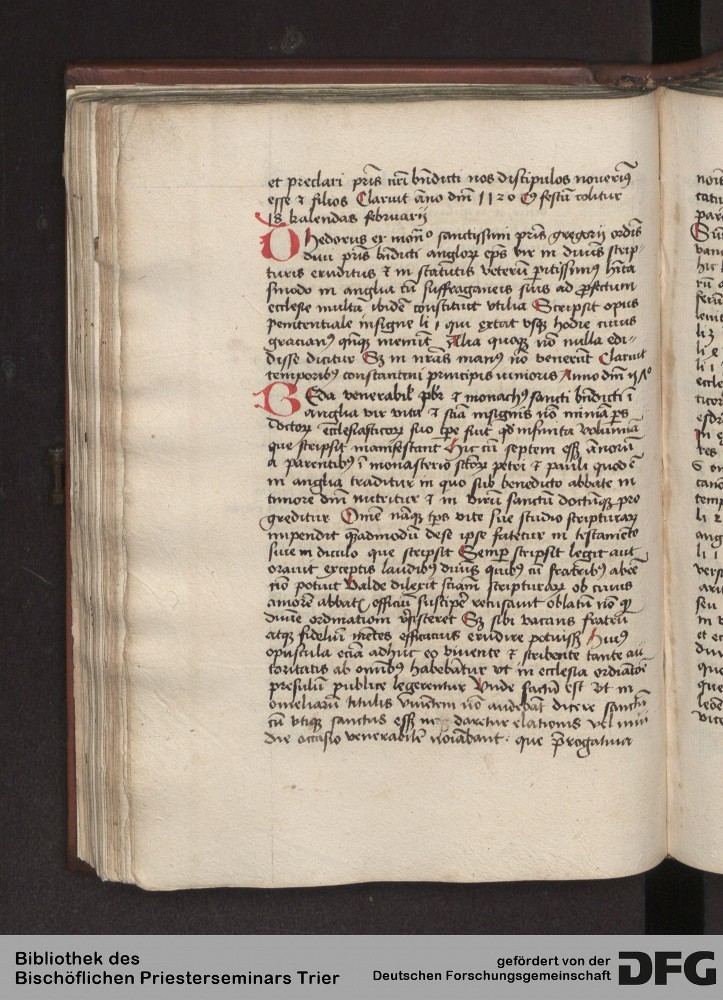 et preclari pris nri bndicti nos discipulos noueritis
esse & filios Claruit ano dni 1120 Cuius festu colitur
18 kalendas februarij
Thedorus ex mon° sanctissimi pris gregorij ordis
diui pris bndicti anglor eps vir in diuis scrip-
turis eruditus & in statutis veteru pitissimus hita
sinodo in anglia cu suffraganeis suis ad pfectum
ecclesie multa ibide constituit vtilia Scripsit opus
penitentiale insigne li 1 qui extat vsq hodie cuius
gracianus qnq meminit Alia quoq no nulla edi-
disse dicitur Sz in nras manus no venerut Claruit
temporibus constantini principis iunioris Anno dni
Beda venerabil pbr & monachus sancti bndicti i
anglia vir vita & scia insignis no minima ps
doctor ecclesiasticor suo tpe fuit qd infinita volumina
que scripsit manifestant Hic cu septem esset annoru
a parentibus i monasterio sctor petri & pauli quod e
in anglia traditur in quo sub benedicto abbate in
timore dni nutritur & in viru sanctu doctuq pro
greditur Ome naq tps vite sue studio scripturar
impendit qadmodu dese ipse fatetur in testamento
siue in diculo que scripsit Semper scripsit legit aut
orauit exceptis laudibus diuis quibus cu fratribus abee
no potuit Valde dilexit sciam scripturar ob cuius
amore abbatis officiu suscipe recusauit oblatu no
diuie ordinationi resisteret Sz sibi vacans fratru
atq fideliu metes efficacius erudire potuisset Huius
opuscula ecia adhuc eo viuente & scribente tante au
toritatis ab omibus habebantur vt in ecclesia ordiatoe
presulu publice legerentur Vnde factu est vt in
omeliaru titulis viuentem no audebat dicere sanctu
cu vtiq sanctus esset ne daretur elationis vel
die occasio venerabile noiabant : que progatiua
Bibliothek des
Bischöflichen Priesterseminars Trier
gefördert von der
Deutschen Forschungsgemeinschaft
DFG